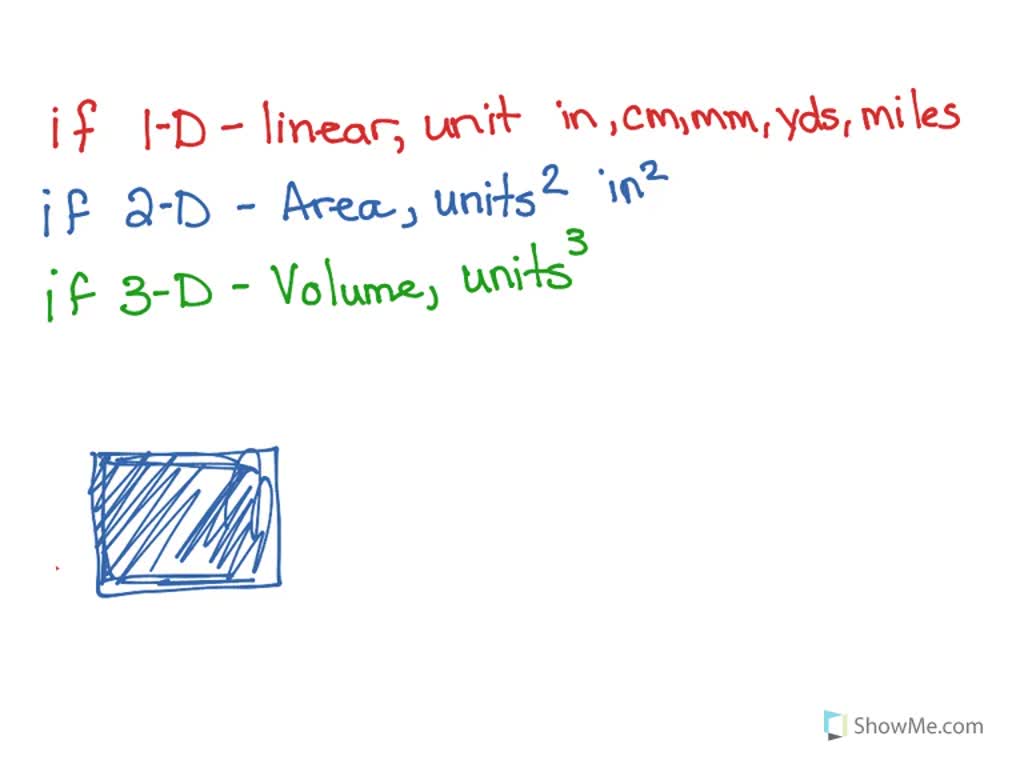 if 1-D - linear, unit in, cm, mm, yds, miles
if 2-D - Area, units² in²
if 3-D - Volume, units³
ShowMe.com